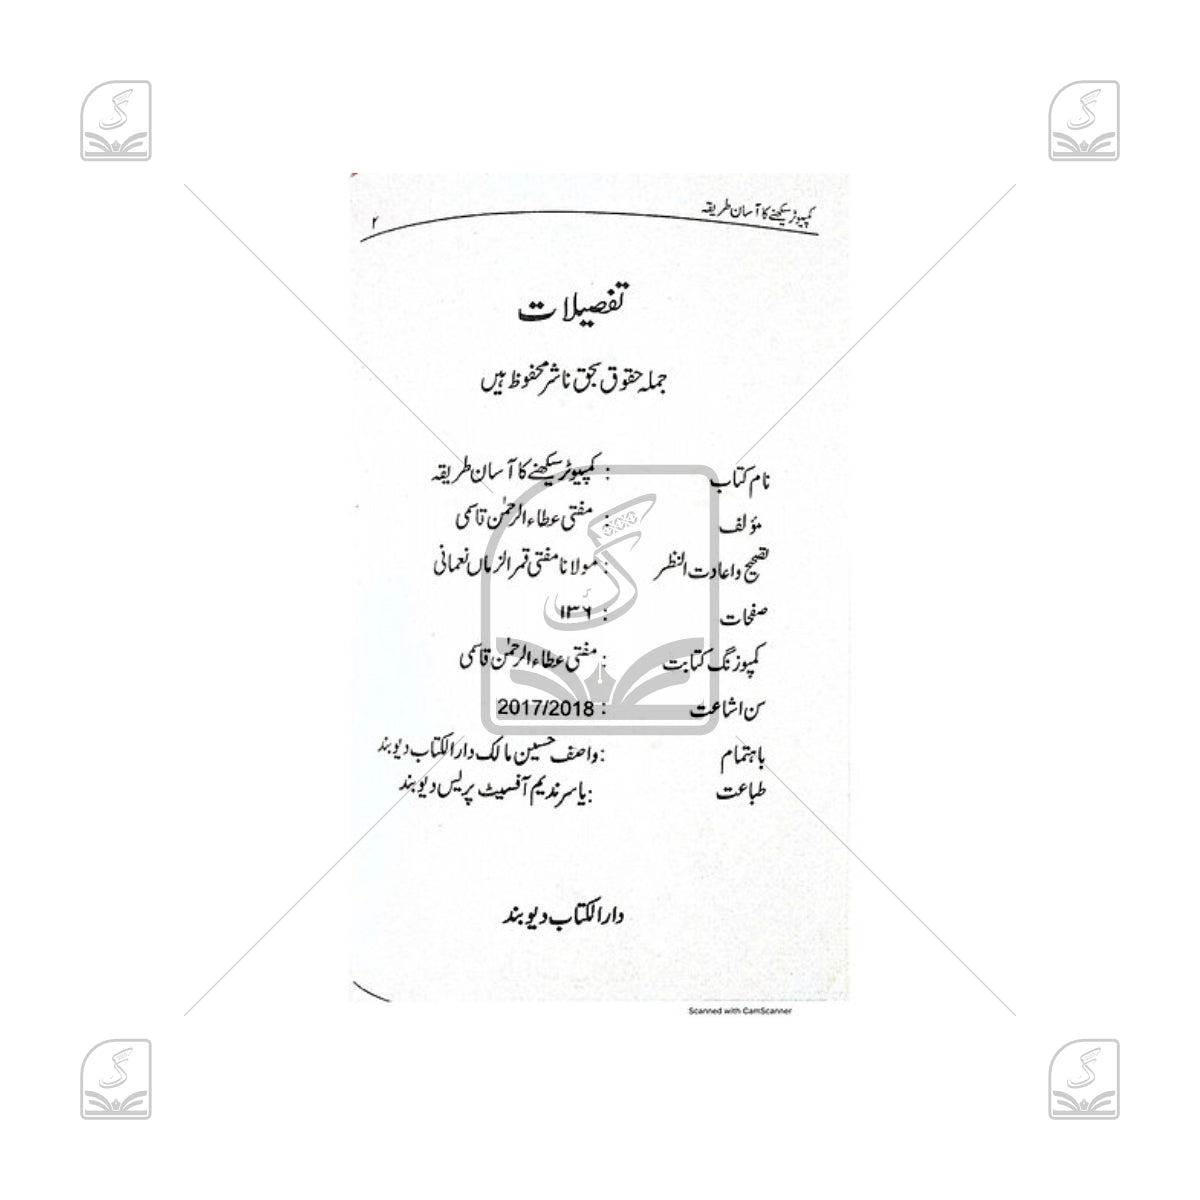 کمپیوٹر سیکھنے کا آسان طریقہ ۲
تفصیلات
جملہ حقوق بحق ناشر محفوظ ہیں
نام کتاب : کمپیوٹر سیکھنے کا آسان طریقہ
مؤلف : مفتی عطاء الرحمٰن قاسمی
تصحیح و اعادت النظر : مولانا مفتی قمر الزماں نعمانی
صفحات : ۱۳۶
کمپوزنگ کتابت : مفتی عطاء الرحمٰن قاسمی
سن اشاعت : 2017/2018
باہتمام : واصف حسین مالک دار الکتاب دیوبند
طباعت : یاسر ندیم آفسیٹ پریس دیوبند
دار الکتاب دیوبند
Scanned with CamScanner